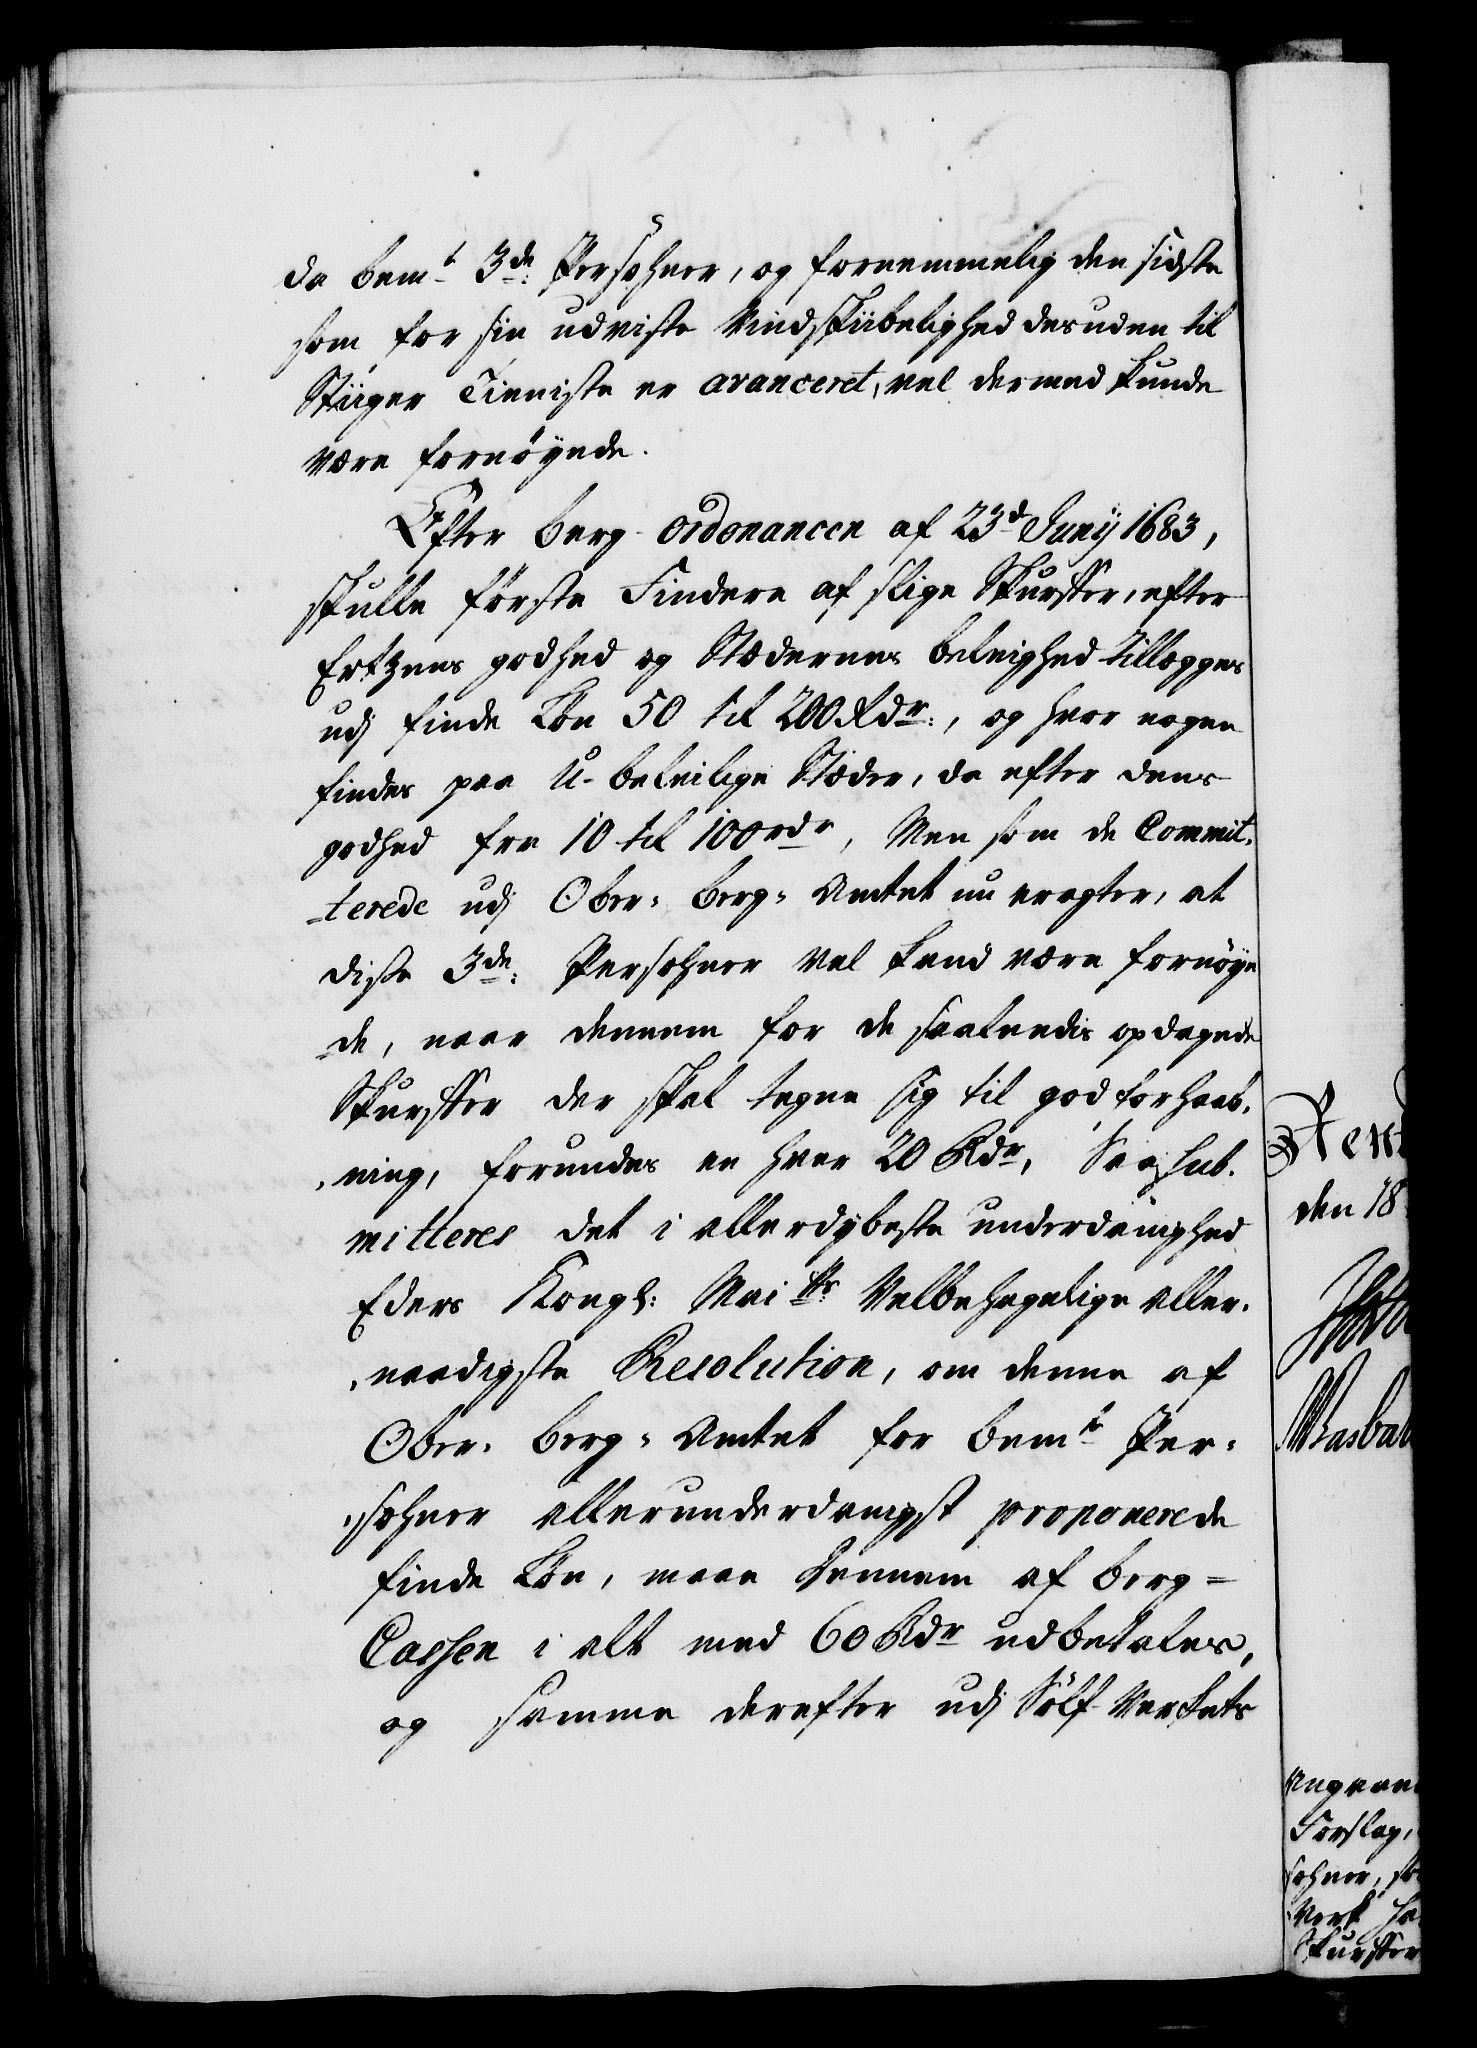 da bem.t 3de: Persohner, og fornemmelig den sidste
som for sin udviste Vindskibelighed desuden til
Stiiger Tieniste er avanceret, vel dermed kunde
være fornöyede.
Efter berg-ordonancen af 23d Junij 1683,
skulle förste Findere af slige Skursser, efter
Ertzens godhed og Stædernes beleighed tillegges
udj finde Lön 50 til 200 Rdr:, og hvor nogen
findes paa U-beleilige Stæder, da efter dens
godhed fra 10 til 100 rdr, Men som de Commit-
terede udj Ober-berg-Amtet nu eragter, at
disse 3de: Persohner vel kand være fornöye-
de, naar dennem for de saaledis opdagede
Skursser der skal tegne sig til god forhaab-
ning, forundes en hver 20 Rdr, Saa sub-
mitteres det i allerdybeste underdanighed
Eders Kongl: Mai ts: Velbehagelige aller-
naadigste Resolution, om denne af
Ober-berg-Amtet for bemte Per-
sohner allerunderdanigst proponerede
finde Lön, maae dennem af berg-
Cassen i alt med 60 Rdr udbetales,
og samme derefter udj Sölf-Verkets
Rent
den 18
Angaaen
Forslag,
sohner, so
Verk ha
Skursser